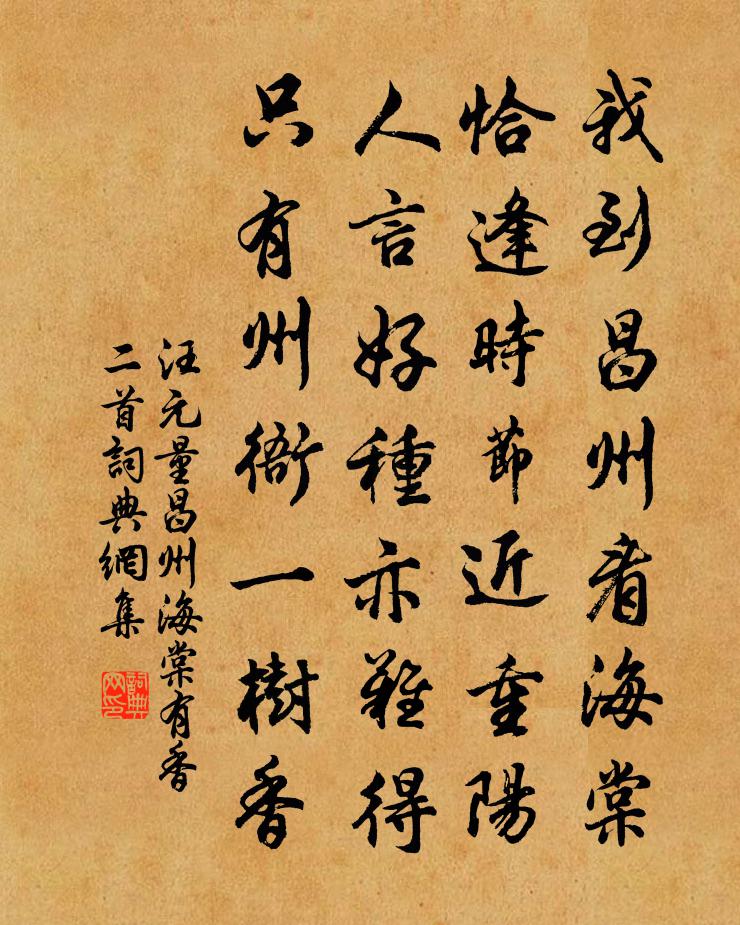 我到昌州看海棠
恰逢時節近重陽
人言好種亦難得
只有州衙一樹香
汪元量昌州海棠有香
二首詞典網集
詞典网印